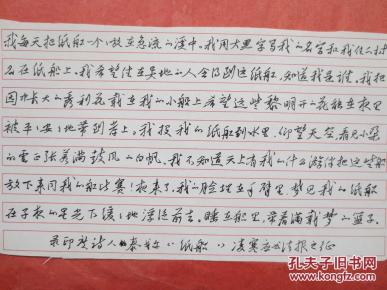 我每天把纸船一个个放在急流的溪中。我用大黑字写我的名字和我住的村
名在纸船上。我希望住在异地的人会得到这纸船，知道我是谁。我把
园中长的秀利花载在我的小船上希望这些黎明开的花能在夜里
被平平安安地带到岸上。我投我的纸船到水里，仰望天空看见小朵
的云正张着满鼓风的白帆。我不知道天上有我的什么游伴把这些船
放下来同我的船比赛！夜来了，我的脸埋在手臂里，梦见我的纸船
在子夜的星光下缓缓地浮泛前去。睡在船里，带着满载梦的篮子。
录印度诗人泰戈尔 "纸船"
孔夫子旧书网